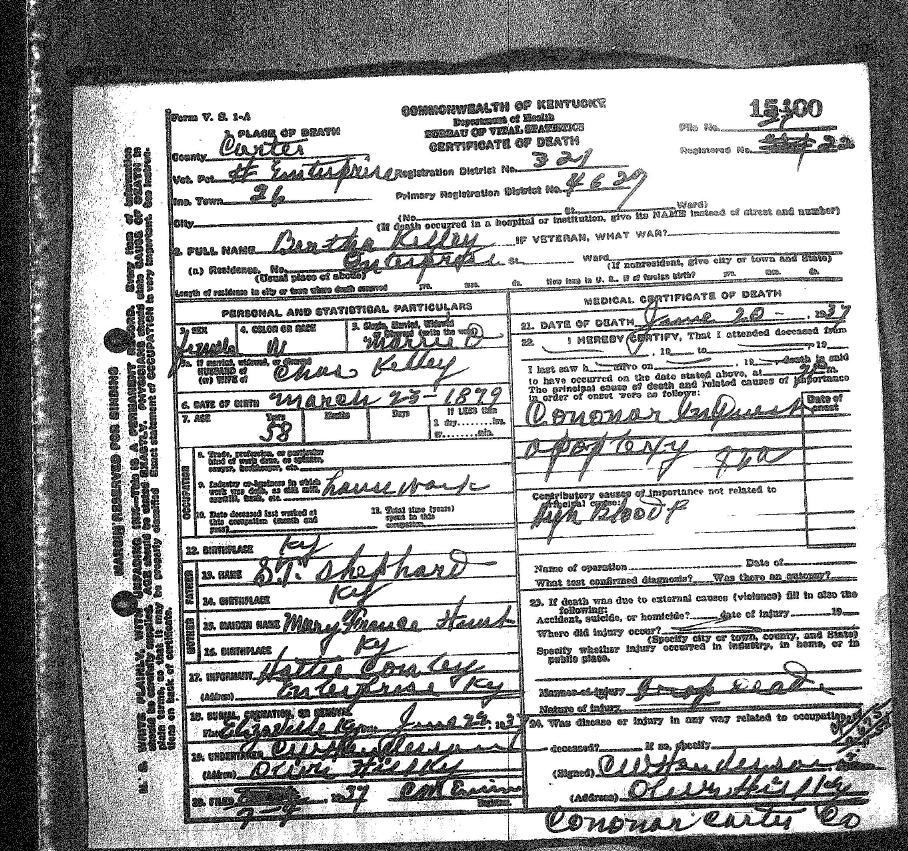 Form V. S. 1-A
COMMONWEALTH OF KENTUCKY
Department of Health
BUREAU OF VITAL STATISTICS
CERTIFICATE OF DEATH
15400
File No.
Registered No. 22
1. PLACE OF DEATH
County Carter
Vot. Pct. # Enterprise Registration District No. 327
Inc. Town 26 Primary Registration District No. 4627
City (No. St. Ward)
(If death occurred in a hospital or institution, give its NAME instead of street and number)
2. FULL NAME Bertha Kelley IF VETERAN, WHAT WAR?
(a) Residence. No. Enterprise St. Ward
(Usual place of abode) (If nonresident, give city or town and State)
Length of residence in city or town where death occurred yrs. mos. ds. How long in U. S., if of foreign birth? yrs. mos. ds.
PERSONAL AND STATISTICAL PARTICULARS
3. SEX female
4. COLOR OR RACE W
5. Single, Married, Widowed or Divorced (write the word) Married
5a. If married, widowed, or divorced
HUSBAND of
(or) WIFE of Chas Kelley
6. DATE OF BIRTH March 25-1879
7. AGE Years 58 Months Days If LESS than
1 day hrs.
or min.
OCCUPATION
8. Trade, profession, or particular
kind of work done, as spinner,
sawyer, bookkeeper, etc.
9. Industry or business in which
work was done, as silk mill,
sawmill, bank, etc. housework
10. Date deceased last worked at
this occupation (month and
year)
11. Total time (years)
spent in this
occupation
12. BIRTHPLACE Ky
FATHER
13. NAME S.T. Shephard
14. BIRTHPLACE Ky
MOTHER
15. MAIDEN NAME Mary
16. BIRTHPLACE Ky
17. INFORMANT Hattie Conley
(Address) Enterprise Ky
18. BURIAL, CREMATION, OR REMOVAL
Place Elizaville Ky Date June 22, 1937
19. UNDERTAKER CW Henderson
(Address) Olive Hill Ky
20. FILED 7-9 1937
Registrar.
MEDICAL CERTIFICATE OF DEATH
21. DATE OF DEATH June 20-, 1937
22. I HEREBY CERTIFY, That I attended deceased from
, 19 to , 19
I last saw h alive on , 19 death is said
to have occurred on the date stated above, at m.
The principal cause of death and related causes of importance
in order of onset were as follows:
Date of onset
Cononar Inquest
apoplexy
Contributory causes of importance not related to
principal cause:
High Blood P
Name of operation Date of
What test confirmed diagnosis? Was there an autopsy?
23. If death was due to external causes (violence) fill in also the
following:
Accident, suicide, or homicide? date of injury 19
Where did injury occur?
(Specify city or town, county, and State)
Specify whether injury occurred in industry, in home, or in
public place.
Manner of injury Drop dead
Nature of injury
24. Was disease or injury in any way related to occupation
deceased? If so, specify
(Signed) CW Henderson
(Address) Olive Hill Ky
Cononar Carter Co
MARGIN RESERVED FOR BINDING
N. B. WRITE PLAINLY, WITH UNFADING INK—THIS IS A PERMANENT RECORD. Every item of information
should be carefully supplied. AGE should be stated EXACTLY. PHYSICIANS should state CAUSE OF DEATH in
plain terms, so that it may be properly classified. Exact statement of OCCUPATION is very important. See instruc-
tions on back of certificate.